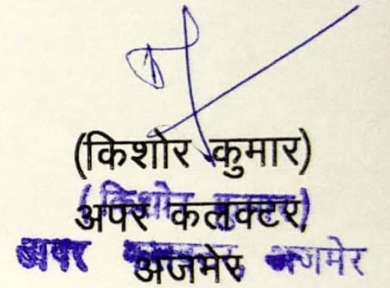 (किशोर कुमार)
(किशोर कुमार)
अपर कलक्टर,
अपर अजमेर
अजमेर